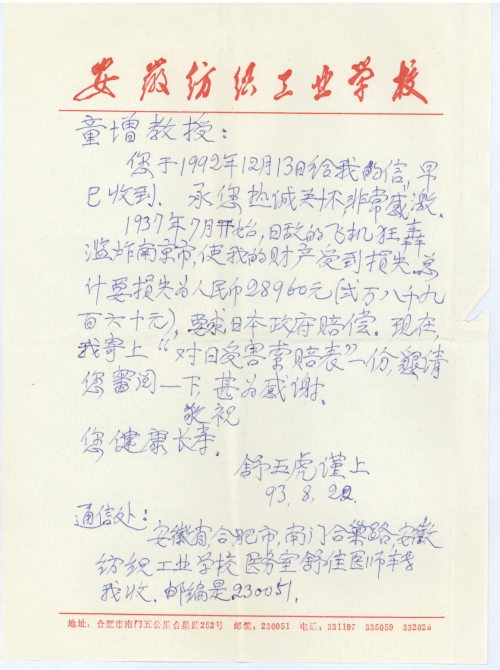 安徽纺织工业学校
童增教授：
您于1992年12月13日给我的信，早
已收到。承您热诚关怀，非常感激。
1937年7月开始，日敌的飞机狂轰
滥炸南京市，使我的财产受到损失，总
计要损失为人民币28960元（弍万八千九
百六十元），要求日本政府赔偿。现在，
我寄上“对日受害索赔表”一份，恳请
您审阅一下，甚为感谢。
敬祝
您健康长寿。
舒五虎谨上
93.8.2
通信处：
安徽省合肥市，南门合巢路，安徽
纺织工业学校医务室舒佳医师转
我收。邮编是230051.
地址：合肥市南门五公里合巢路252号 邮编：230051 电话：331197 335059 332028